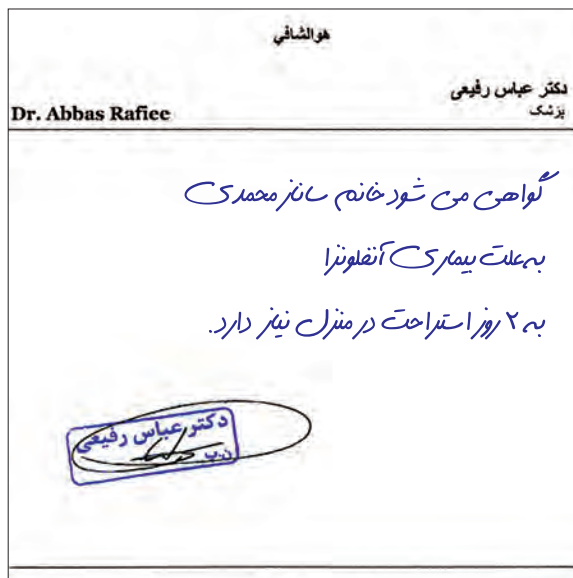 هوالشافي
دکتر عباس رفیعی
پزشک
Dr. Abbas Rafiee
گواهی می شود خانم ساناز محمدی
به علت بیماری آنفلونزا
به ۲ روز استراحت در منزل نیاز دارد.
دکتر عباس رفیعی
ن.پ